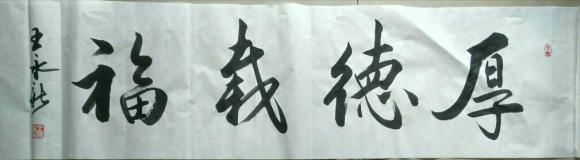 厚德载福
王永